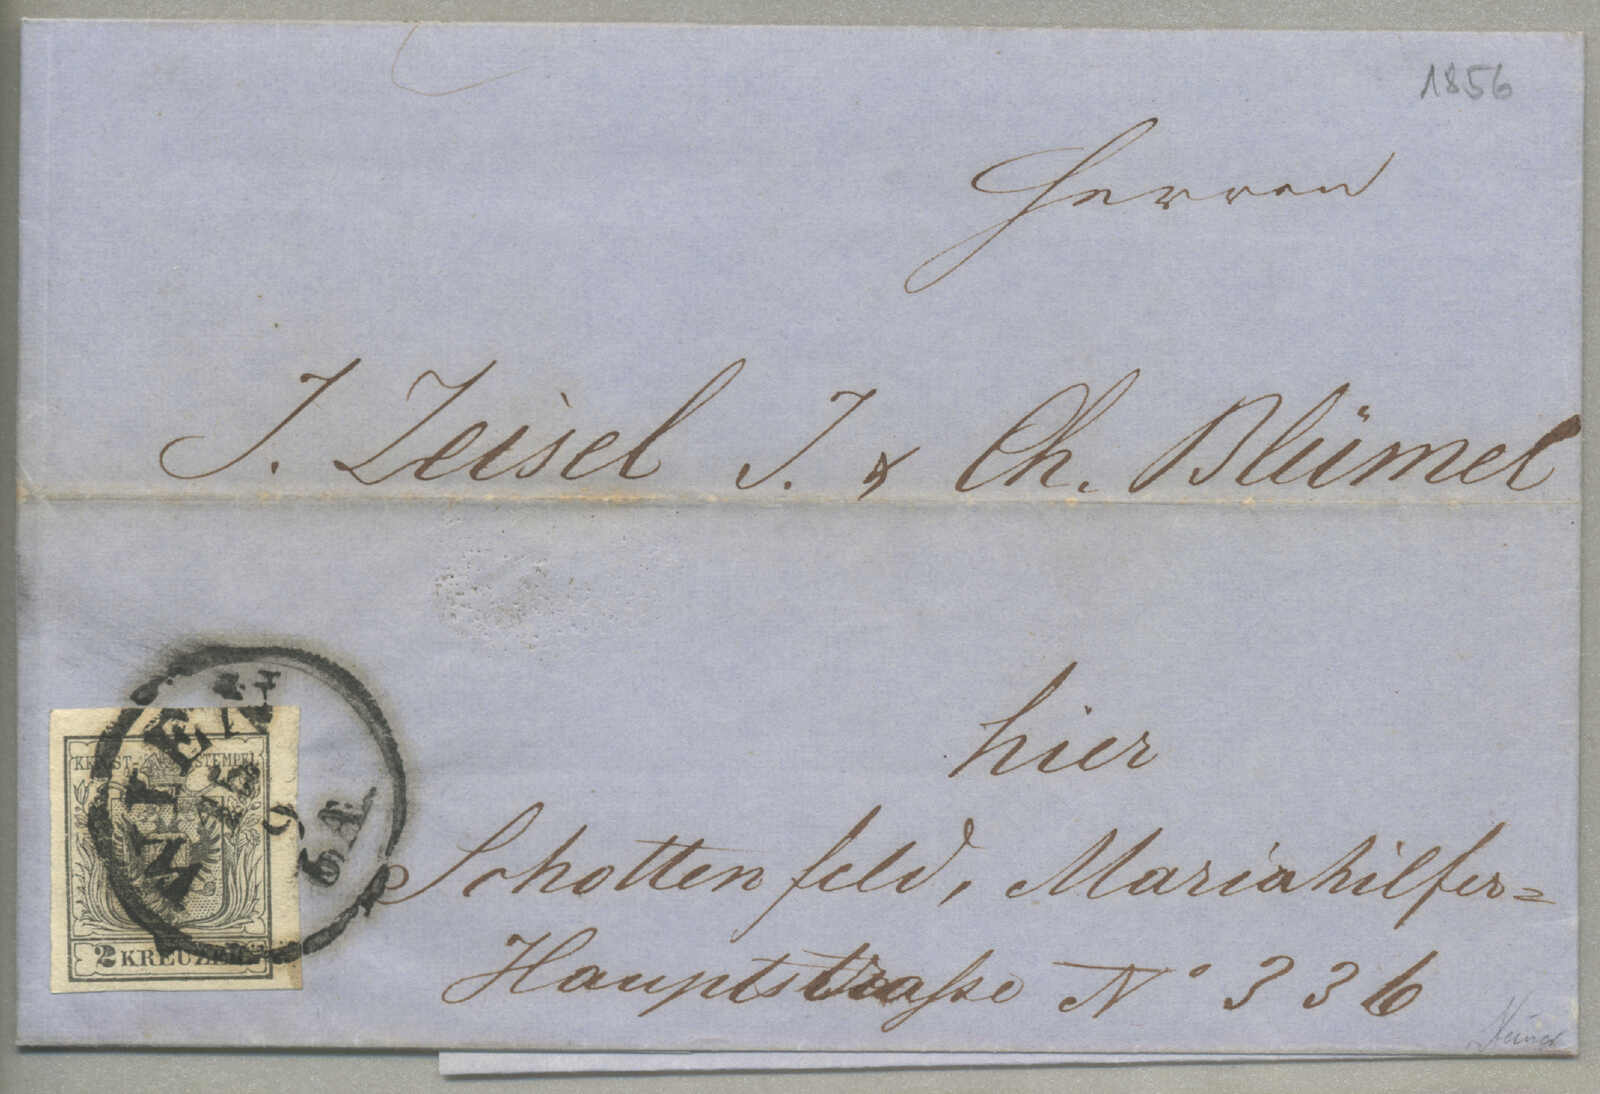 1856
Herren
J. Zeisel J. & Ch. Blümel
hier
Schottenfeld, Mariahilfer=
Hauptstraße N° 336
WIEN
KK POST-STEMPEL
2 KREUZER